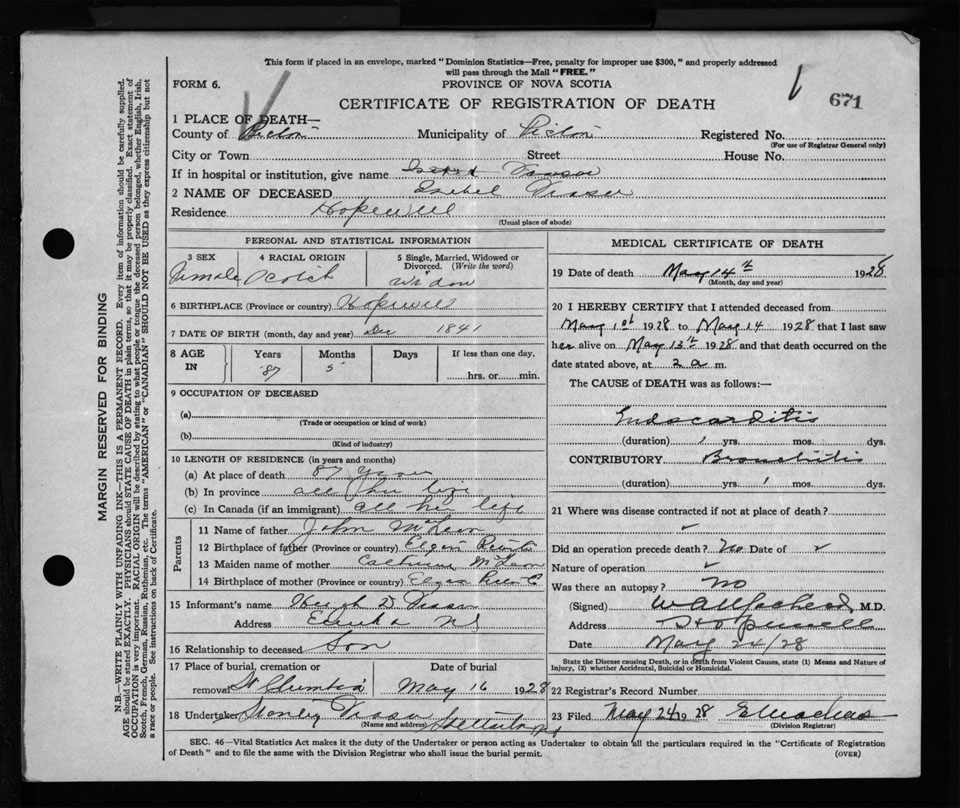 This form if placed in an envelope, marked "Dominion Statistics—Free, penalty for improper use $300," and properly addressed
will pass through the Mail "FREE."
FORM 6.
PROVINCE OF NOVA SCOTIA
671
CERTIFICATE OF REGISTRATION OF DEATH
1 PLACE OF DEATH—
County of Pictou Municipality of Pictou Registered No.
(For use of Registrar General only)
City or Town Street House No.
If in hospital or institution, give name
2 NAME OF DECEASED Isabel Fraser
Residence Hopewell
(Usual place of abode)
PERSONAL AND STATISTICAL INFORMATION
3 SEX 4 RACIAL ORIGIN 5 Single, Married, Widowed or
Divorced. (Write the word)
Female Scotch Widow
6 BIRTHPLACE (Province or country) Hopewell
7 DATE OF BIRTH (month, day and year) Dec 1841
8 AGE IN Years Months Days If less than one day,
87 5 hrs. or min.
9 OCCUPATION OF DECEASED
(a)
(Trade or occupation or kind of work)
(b)
(Kind of industry)
10 LENGTH OF RESIDENCE (in years and months)
(a) At place of death 87 years
(b) In province all her life
(c) In Canada (if an immigrant) all her life
Parents
11 Name of father John McLean
12 Birthplace of father (Province or country) Elgin
13 Maiden name of mother McLean
14 Birthplace of mother (Province or country) Elgin
15 Informant's name Hugh D Fraser
Address Eureka NS
16 Relationship to deceased Son
17 Place of burial, cremation or Date of burial
removal St Columba May 16 1928
18 Undertaker Stanley Fraser
(Name and address)
MEDICAL CERTIFICATE OF DEATH
19 Date of death May 14th 1928
(Month, day and year)
20 I HEREBY CERTIFY that I attended deceased from
May 1st 1928 to May 14 1928 that I last saw
her alive on May 13th 1928 and that death occurred on the
date stated above, at 2 a m.
The CAUSE of DEATH was as follows:—
Endocarditis
(duration) 1 yrs. mos. dys.
CONTRIBUTORY Bronchitis
(duration) yrs. 1 mos. dys.
21 Where was disease contracted if not at place of death?
Did an operation precede death? No Date of
Nature of operation
Was there an autopsy? No
(Signed) M.D.
Address Hopewell
Date May 24/28
State the Disease causing Death, or in death from Violent Causes, state (1) Means and Nature of
Injury, (2) whether Accidental, Suicidal or Homicidal.
22 Registrar's Record Number
23 Filed May 24 1928
(Division Registrar)
SEC. 46—Vital Statistics Act makes it the duty of the Undertaker or person acting as Undertaker to obtain all the particulars required in the "Certificate of Registration
of Death" and to file the same with the Division Registrar who shall issue the burial permit.
(OVER)
MARGIN RESERVED FOR BINDING
N.B.—WRITE PLAINLY WITH UNFADING INK—THIS IS A PERMANENT RECORD. Every item of information should be carefully supplied.
AGE should be stated EXACTLY. PHYSICIANS should STATE CAUSE OF DEATH in plain terms, so that it may be properly classified. Exact statement of
OCCUPATION is very important. RACIAL ORIGIN will be described by stating to what people or tongue the deceased person belonged, whether English, Irish,
Scotch, French, German, Russian, Ruthenian, etc. The terms "AMERICAN" or "CANADIAN" SHOULD NOT BE USED as they express citizenship but not
a race or people. See instructions on back of Certificate.